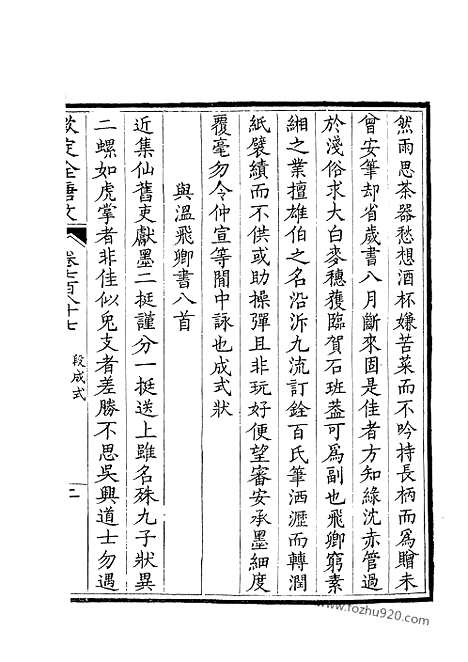 然雨思茶器愁想酒杯嫌苦菜而不吟持長柄而為贈未
曾安筆却省歲書八月斷來固是佳者方知綠沈赤管過
於淺俗求大白麥穗穫臨賀石班葢可為副也飛卿窮素
緗之業擅雄伯之名沿泝九流訂銓百氏筆洒瀝而轉潤
紙襞績而不供或助操彈且非玩好便望審安承墨細度
覆毫勿令仲宣等閒中詠也成式狀
與溫飛卿書八首
近集仙舊吏獻墨二挺謹分一挺送上雖名殊九子狀異
二螺如虎掌者非佳似兔支者差勝不思吳興道士勿遇
欽定全唐文
卷七百八十七
段成式
二
www.fozhu920.com